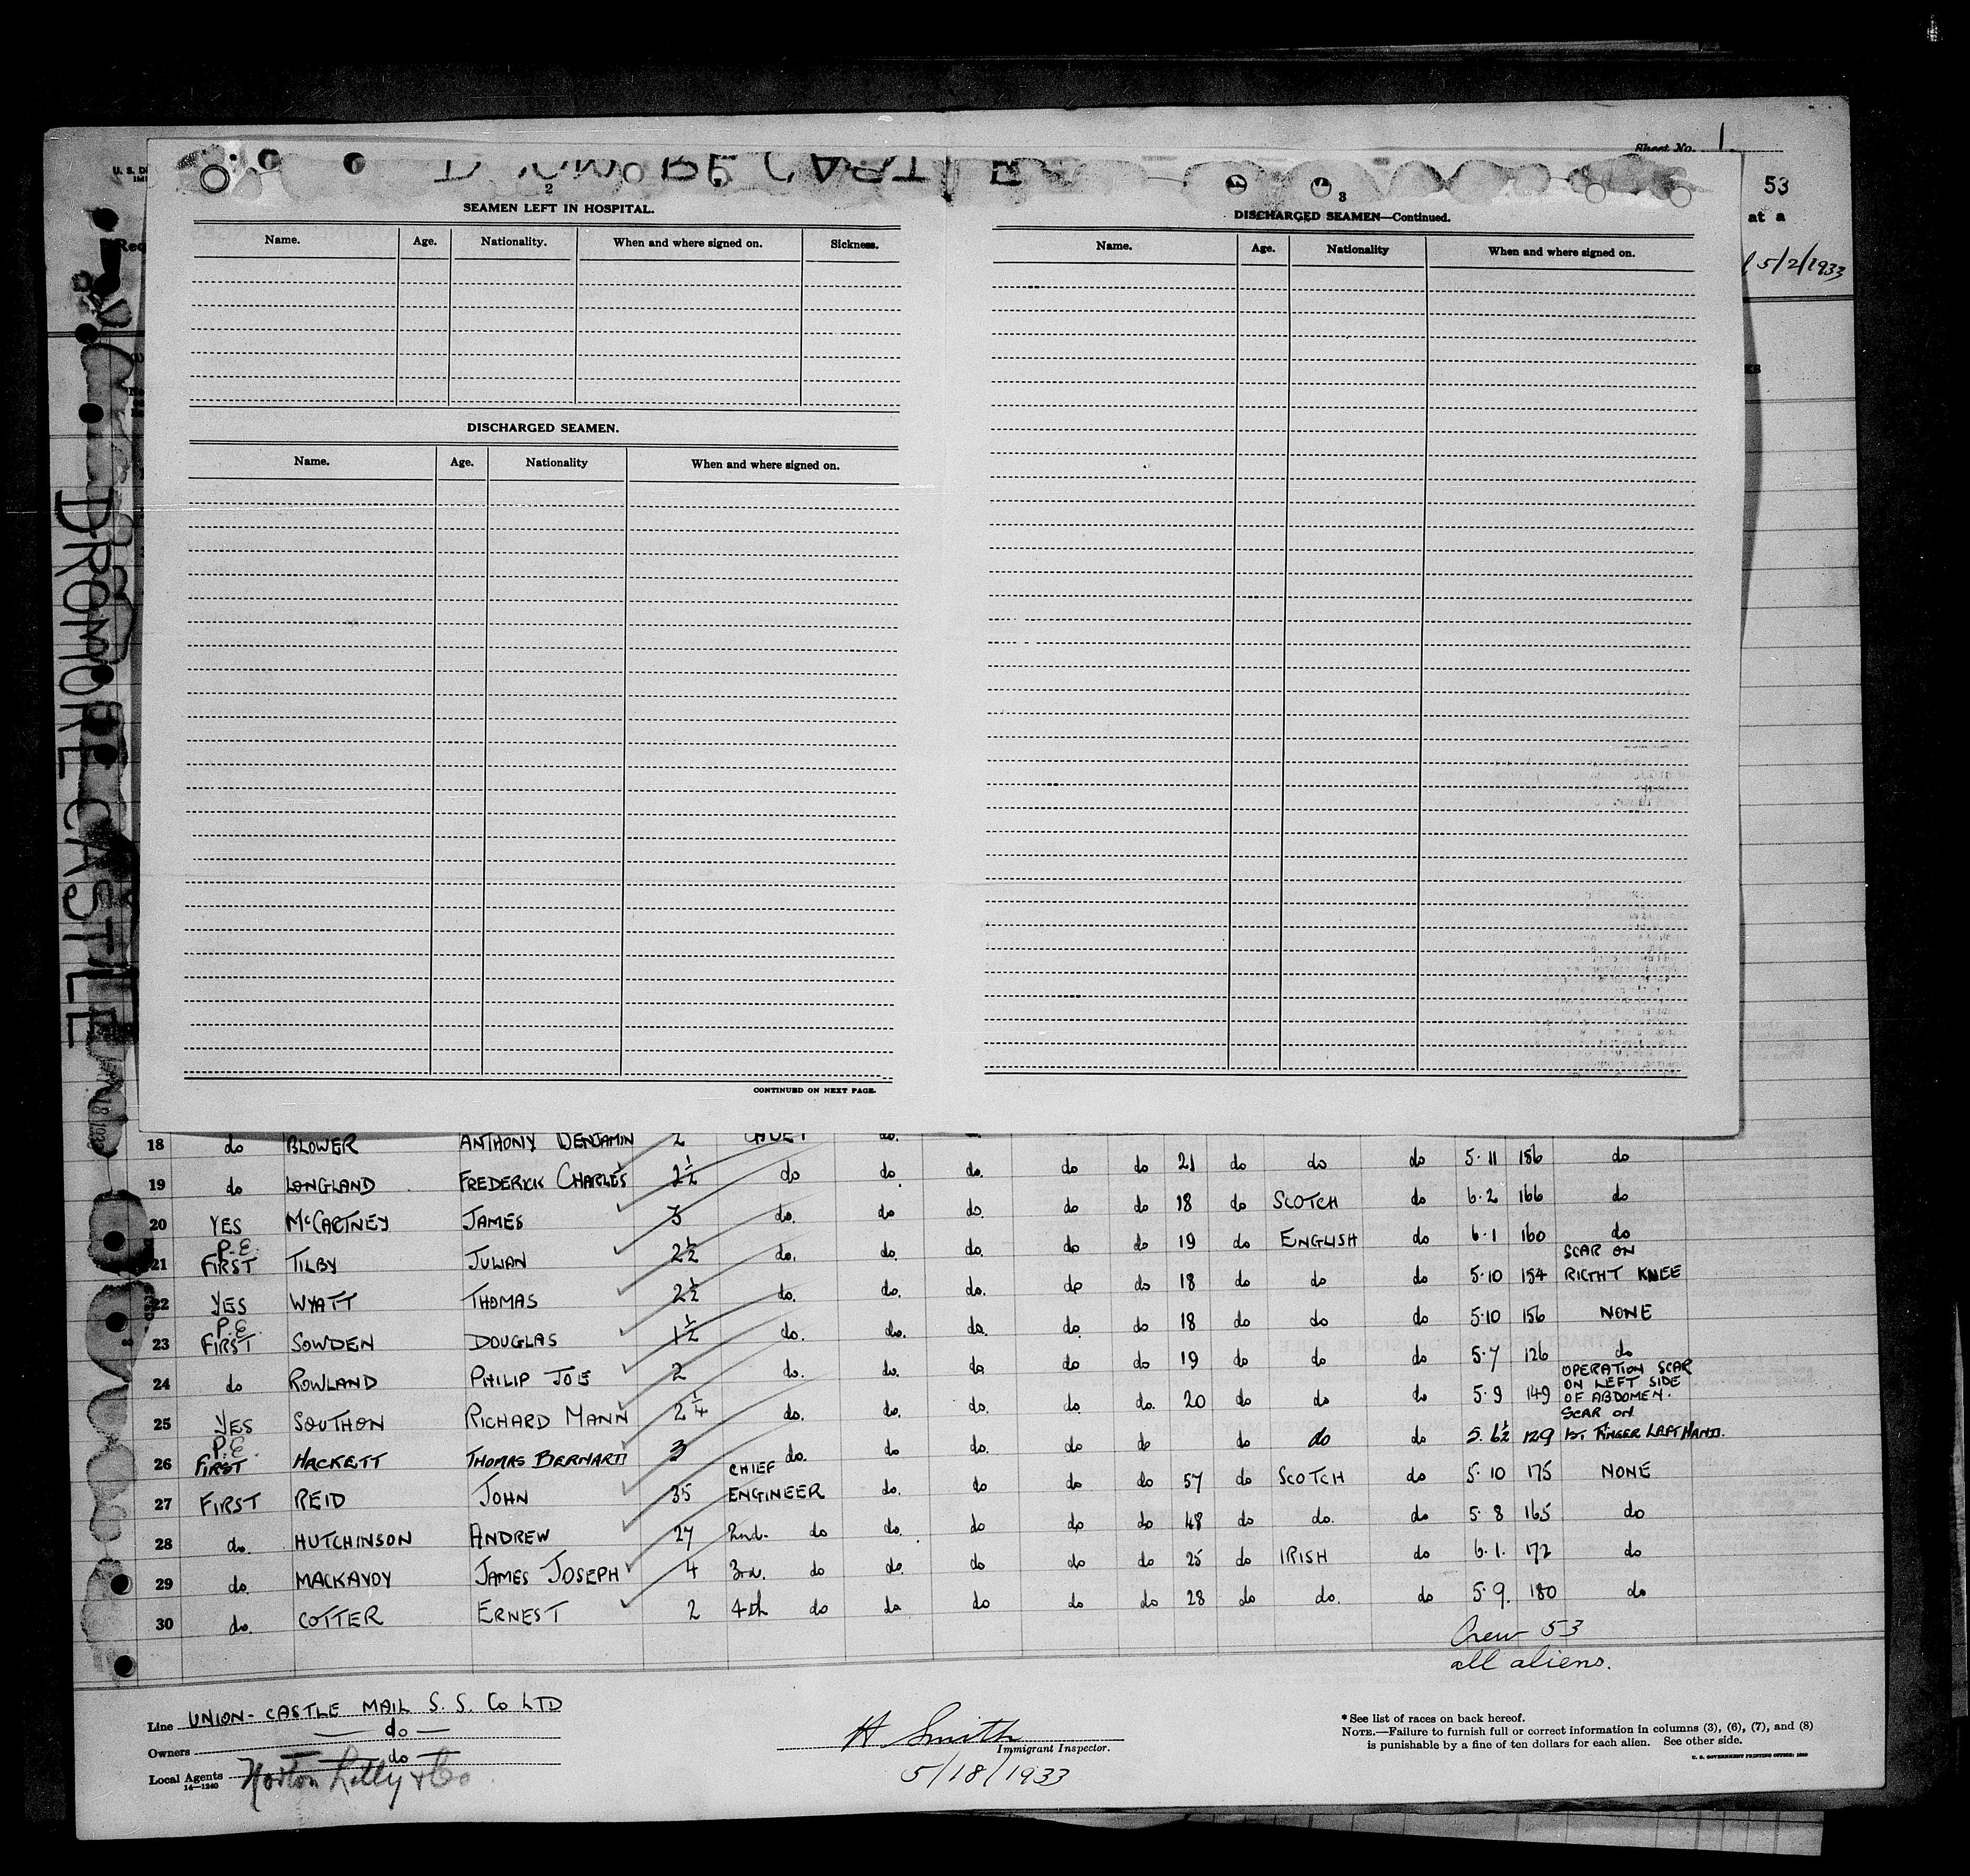 Sheet No. 1
U. S. D
53
at a
5/2/1933
DROMORE CASTLE
2
SEAMEN LEFT IN HOSPITAL.
Name. Age. Nationality. When and where signed on. Sickness.
DISCHARGED SEAMEN.
Name. Age. Nationality When and where signed on.
CONTINUED ON NEXT PAGE.
3
DISCHARGED SEAMEN—Continued.
Name. Age. Nationality When and where signed on.
18 do BLOWER ANTHONY BENJAMIN 2 CADET do. do. do do 21 do do do 5·11 186 do
19 do LONGLAND FREDERICK CHARLES 2½ do do do. do do 18 do SCOTCH do 6·2 166 do
20 YES McCARTNEY JAMES 3 do. do do. do do 19 do ENGLISH do 6·1 160 do
21 P.E. FIRST TILBY JULIAN 2½ do. do. do. do do 18 do do do 5·10 154 SCAR ON RIGTHT KNEE
22 YES WYATT THOMAS 2½ do. do. do. do do 18 do do do 5·10 156 NONE
23 P.E. FIRST SOWDEN DOUGLAS 1½ do. do. do. do do 19 do do do 5·7 126 do
24 do ROWLAND PHILIP JOE 2 do. do. do do do. 20 do do do 5·9 149 OPERATION SCAR ON LEFT SIDE OF ABDOMEN.
25 YES SOUTHON RICHARD MANN 2¼ do. do. do. do do do do do 5·6½ 129 SCAR ON 1ST FINGER LEFT HAND.
26 P.E. FIRST HACKETT THOMAS BERNARD 3 do. do do. do do 57 do SCOTCH do 5·10 175 NONE
27 FIRST REID JOHN 35 CHIEF ENGINEER do. do do do 48 do do. do 5·8 165 do
28 do. HUTCHINSON ANDREW 27 2nd. do do. do do do 25 do IRISH do 6·1. 172 do
29 do. MACKAVOY JAMES JOSEPH 4 3rd. do do. do do do 28 do do. do 5·9. 180 do
30 do. COTTER ERNEST 2 4th do do do
Crew 53
all aliens.
Line UNION-CASTLE MAIL S. S. Co LTD
Owners — do —
Local Agents — do — Norton Lilly & Co
14—1240
H Smith
Immigrant Inspector.
5/18/1933
* See list of races on back hereof.
NOTE.—Failure to furnish full or correct information in columns (3), (6), (7), and (8)
is punishable by a fine of ten dollars for each alien. See other side.
U. S. GOVERNMENT PRINTING OFFICE: 1930